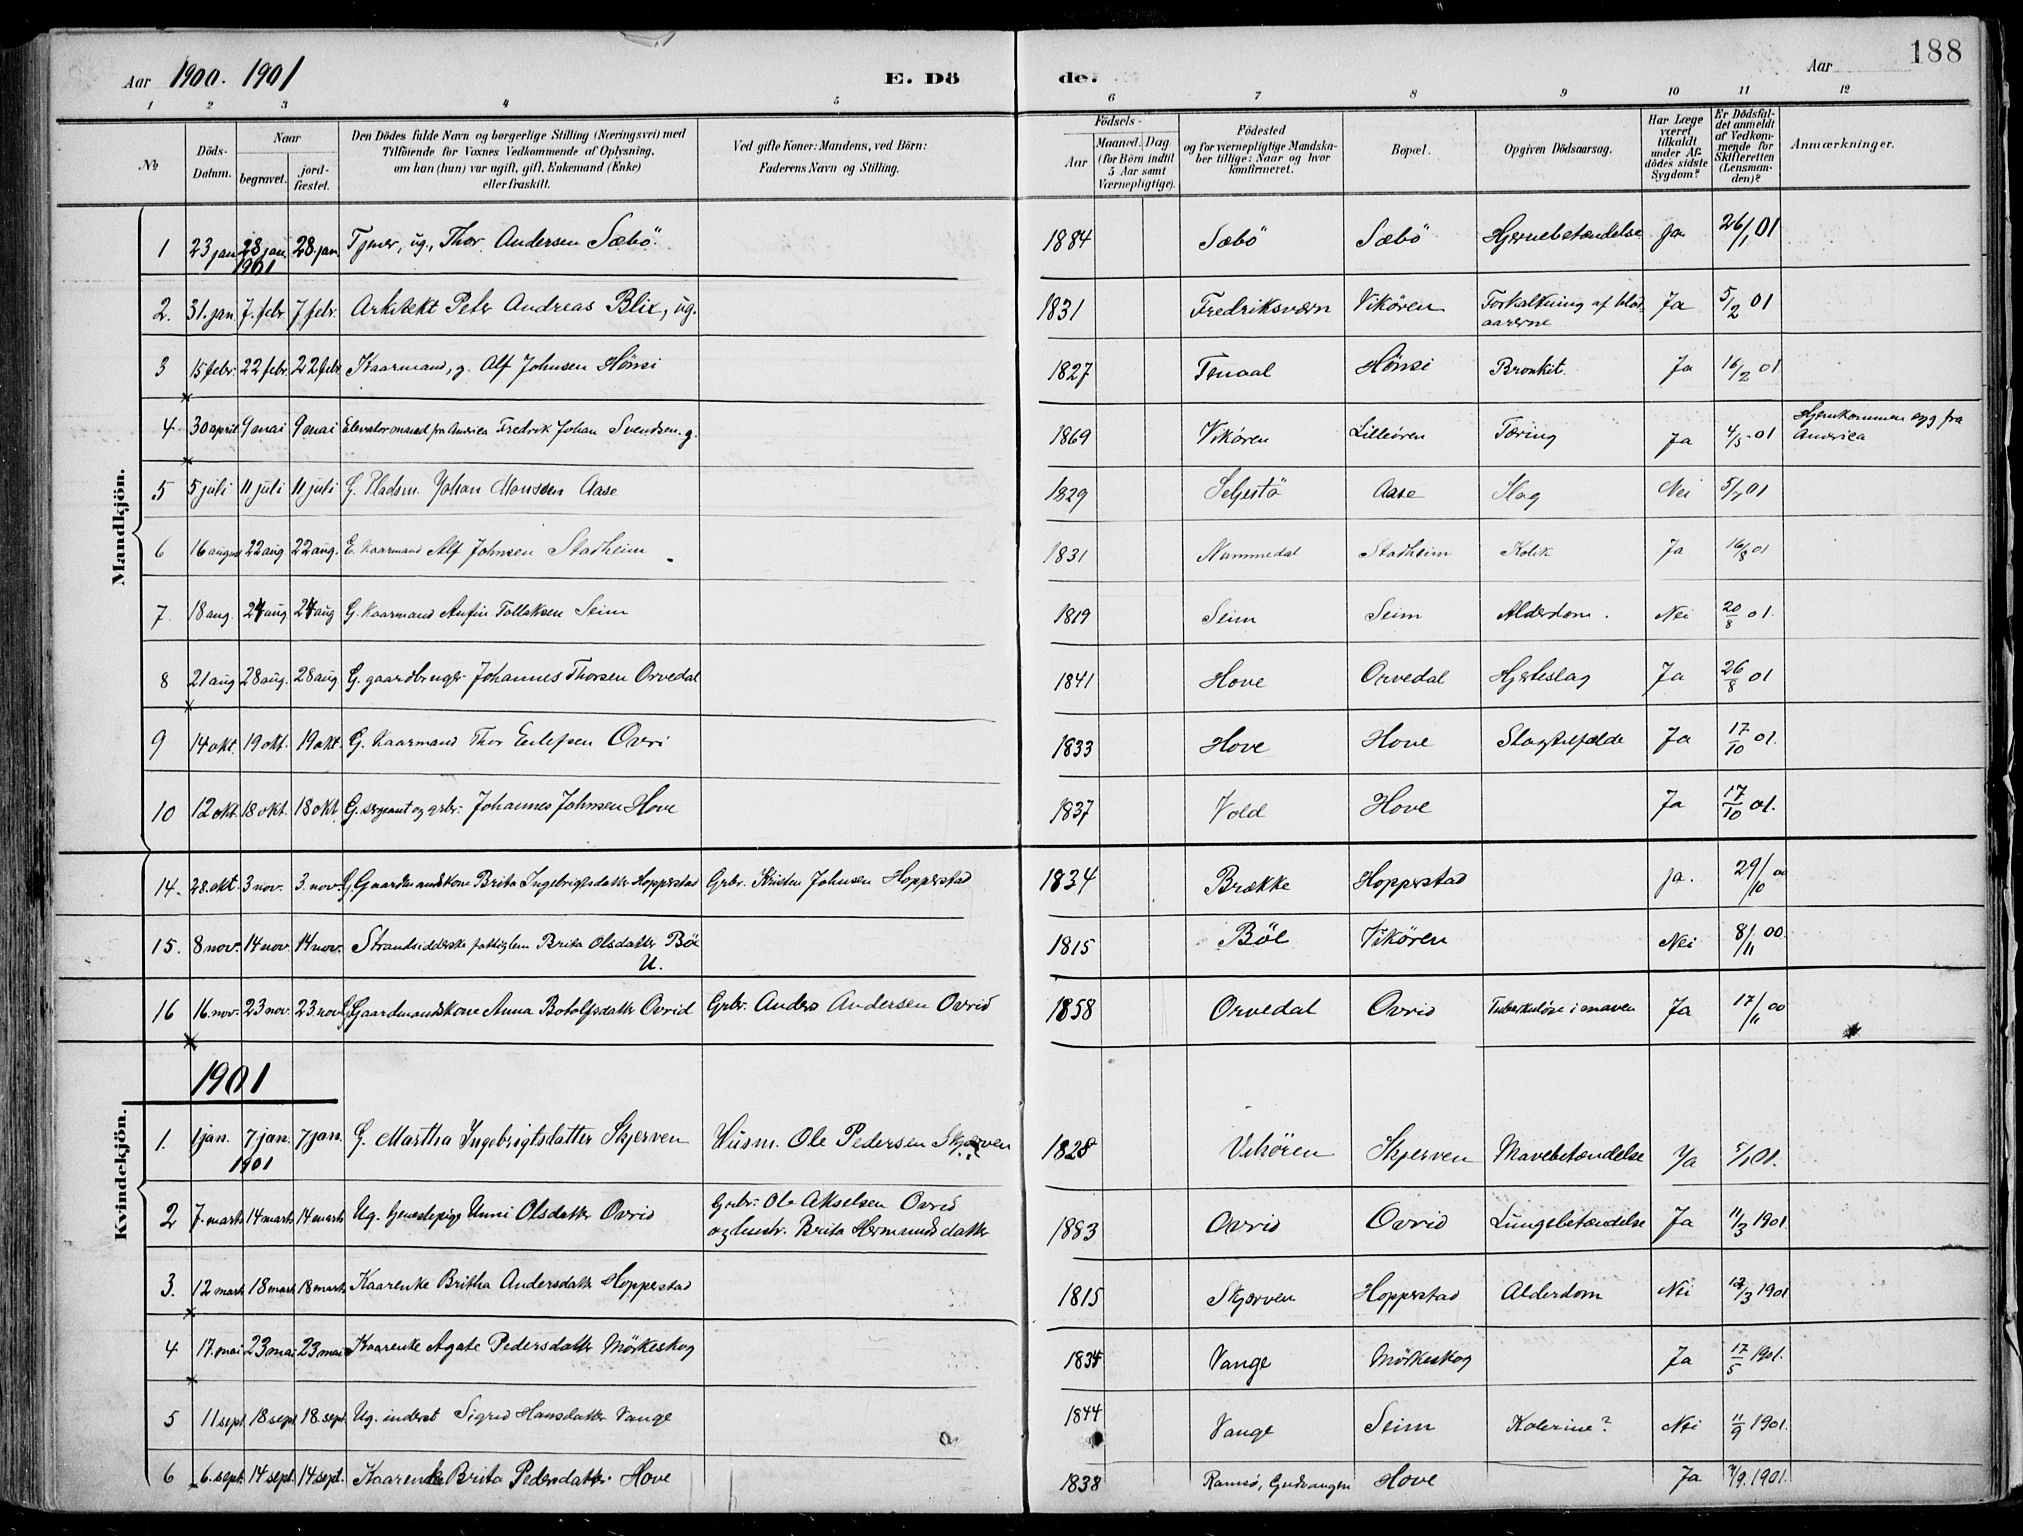 Aar 1900. 1901 E. Dö de. Aar 188
1 2 3 4 5 6 7 8 9 10 11 12
No Döds-Datum. Naar begravet. jordfæstet. Den Dödes fulde Navn og borgerlige Stilling (Næringsvei) med Tilföiende for Voxnes Vedkommende af Oplysning, om han (hun) var ugift, gift, Enkemand (Enke) eller fraskilt. Ved gifte Koner: Mandens, ved Börn: Faderens Navn og Stilling. Födsels- Aar Maaned. Dag. (for Börn indtil 5 Aar samt Værnepligtige). Födested og for værnepligtige Mandskaber tillige: Naar og hvor konfirmeret. Bopæl. Opgiven Dödsaarsag. Har Læge været tilkaldt under Afdödes sidste Sygdom? Er Dödsfaldet anmeldt af Vedkommende for Skifteretten (Lensmanden)? Anmærkninger.
Mandkjön.
1 23 jan 28 jan. 1901 28. jan. Tjener, ug., Thor Andersen Sæbö. 1884 Sæbö Sæbö Hjernebetændelse Ja 26/1 01
2. 31. jan. 7. febr. 7. febr. Arkitekt Peter Andreas Blix, ug. 1831 Fredriksværn Vikören Forkalkning af blodaarerne Ja 5/2 01
3 15 febr. 22 febr. 22 febr. Kaarmand, g. Alf Johnsen Hönsi 1827 Tenaal Hönsi Bronkit. Ja 16/2 01
4 30 april 9 mai 9 mai Elevatormand fra America Fredrik Johan Svendsen. g. 1869 Vikören Lilleören Tæring Ja 4/5 01 Hjemkommen syg fra America
5 5 juli 11 juli 11 juli G. Pladsm. Johan Monssen Aase 1829 Seljestö Aase Slag Nei 5/7 01
6 16 august 22 aug 22 aug. E. Kaarmand Alf Johnsen Stadheim 1831 Nummedal Stadheim Kolik Ja 16/8 01
7. 18 aug. 24 aug 24 aug G. Kaarmand Anfin Tollaksen Seim 1819 Seim Seim Alderdom. Nei 20/8 01.
8 21 aug 28 aug. 28 aug. G. gaardbruger Johannes Thorsen Orvedal 1841 Hove Orvedal Hjerteslag Ja 26/8 01
9 14 okt. 19 okt. 19 okt. G. Kaarmand Thor Enlefsen Ovri 1833 Hove Hove Slagtilfælde Ja 17/10 01.
10 12 okt. 18 okt. 18 okt G. sergeant og grbr. Johannes Johnsen Hove 1837 Vold Hove Ja 17/10 01.
Kvindekjön.
14. 28. okt. 3 nov. 3. nov. G. Gaardmandskone Brita Ingebrigtsdatter Hopperstad Grbr. Kristen Johnsen Hopperstad 1834 Brække Hopperstad Ja. 29/10 00
15. 8 nov. 14 nov. 14 nov. Strandsidderske fattiglem Brita Olsdatter Böe U. 1815 Böe Vikören Nei 8/11 00.
16 16. nov. 23 nov. 23. nov G. Gaardmandskone Anna Botolfsdatter Ovrid Grbr. Anders Andersen Ovrid 1858 Orvedal Ovrid Tuberkulöse i maven Ja 17/11 00
1901
1. 1 jan. 7 jan. 1901 7 jan. G. Martha Ingebrigtsdatter Skjerven Husm. Ole Pedersen Skjerven 1828 Vikören Skjerven Mavebetændelse Ja 5/1 01.
2 7. marts 14 marts 14 marts Ug. Unni Olsdatter Ovrid Grbr. Ole Akselsen Ovrid og hustr. Brita Hermundsdatter 1883 Ovrid Ovrid Lungebetændelse Ja 11/3 1901.
3. 12 marts 18 marts 18 marts Kaarenke Britha Andersdatter Hopperstad 1815 Skjerven Hopperstad Alderdom Nei 12/3 1901
4 17. mai 23 mai 23 mai Kaarenke Agate Pedersdatter Mörkeskog 1834 Vange Mörkeskog Ja 17/5 1901.
5 11 sept. 18 sept. 18. sept. Ug. inderst Sigrid Hansdatter Vange 1844 Vange Seim Kolerine? Nei 11/9 1901.
6 6. sept. 14 sept. 14 sept. Kaarenke Brita Pedersdatter Hove 1838 Ramsö, Gudvangen Hove Ja 7/9. 1901.